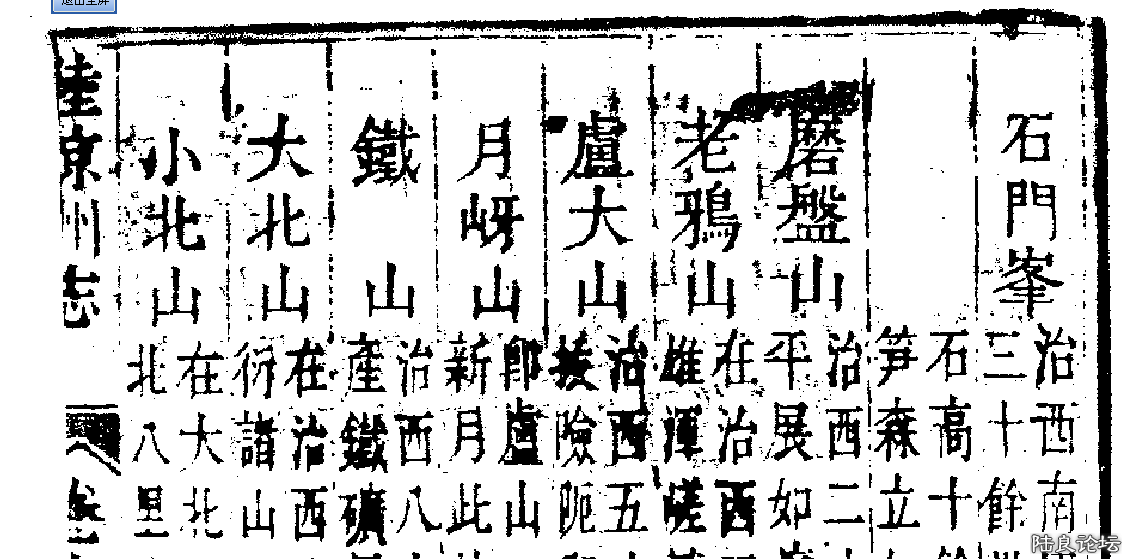 石門峯
治西南
三十餘
石高十
笋森立
磨盤山
治西二
平展如
老鴉山
在治西
雄渾嵯
盧大山
治西五
險阨
月岈山
即盧山
新月此
鐵山
治西八
產鐵礦
大北山
在治西
衍諸山
小北山
在大北
北八里
州志
陆良论坛